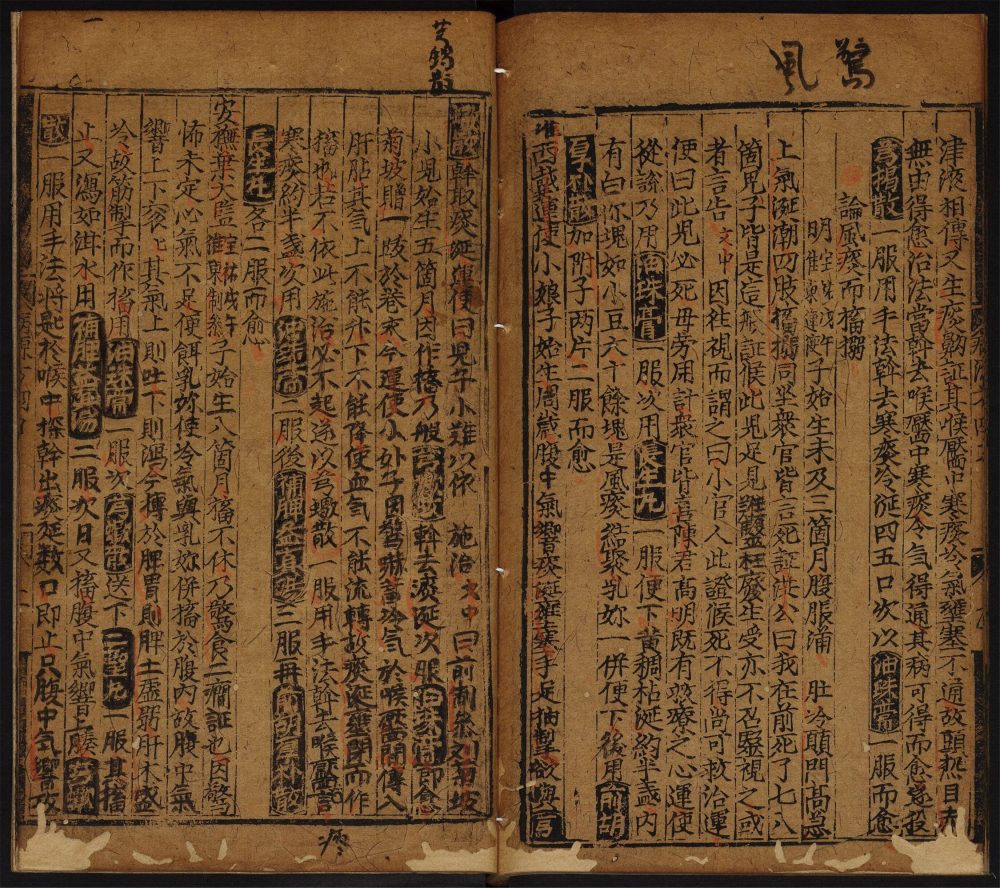 驚風
津液相傳又生痰㱔証其喉中寒痰冷氣壅塞不通故頭熱目赤
無由得愈治法當幹去喉中寒痰令气得通其病可得而愈遂投
芎蝎散一服用手法幹去寒痰冷涎四五口次以油珠膏一服而愈
論風痰而搐搦
明宝祐戊午淮東運使子始生未及三箇月腹脹滿 肚冷顖門高急
上氣涎潮四肢搐搦同坐衆官皆言死証洪公曰我在前死了七八
箇児子皆是這般証候此児足見難醫枉廢生受亦不召毉視之或
者言告文中因往視而謂之曰小官人此證候死不得尚可救治運
便曰此児必死毋劳用計衆官皆言陳君高明既有救療之心運使
從請乃用油珠膏一服次用長生丸一服便下黄稠粘涎約半盞内
有白奶塊如小豆六十餘塊是風痰結聚乳妳一併便下後用前胡
厚朴散加附子两片二服而愈
淮西趙運使小娘子始生周歲腹中气響痰涎壅塞手足抽掣欲與
芎蝎散
蝎散幹取痰涎運使曰児子小難以依 施治文中曰前制参刘菊坡
小児始生五箇月因作搐乃般芎蝎散幹去痰涎次服油珠膏即愈
菊坡贈一跋於卷末今運使小娘子因冷气於喉間傳入
肝肺其气上不能升下不能降使血气不能流轉故痰涎壅閉而作
搐也若不依此施治必不起遂以芎蝎散一服用手法幹去喉中
寒痰約半盞次用油珠膏一服後補脾益真湯三服并前胡厚朴散
長生丸各二服而愈
安撫葉大监宝祐戊午淮東制参子始生八箇月搐不休乃驚食二癎証也因驚
怖未定心氣不足便餌乳妳使冷氣與乳妳併搐於腹内故腹中氣
響上下衮上其氣上則吐下則瀉今傳於脾胃則脾土虚弱肝木盛
冷故筋掣而作搐用油珠膏一服次芎蝎散送下二聖丸一服其搐
止又瀉如泔水用補脾益真湯二服次日又搐腹中氣響服芎蝎
散一服用手法將匙於喉中探幹出痰涎数口即止只腹中气響夜
疼